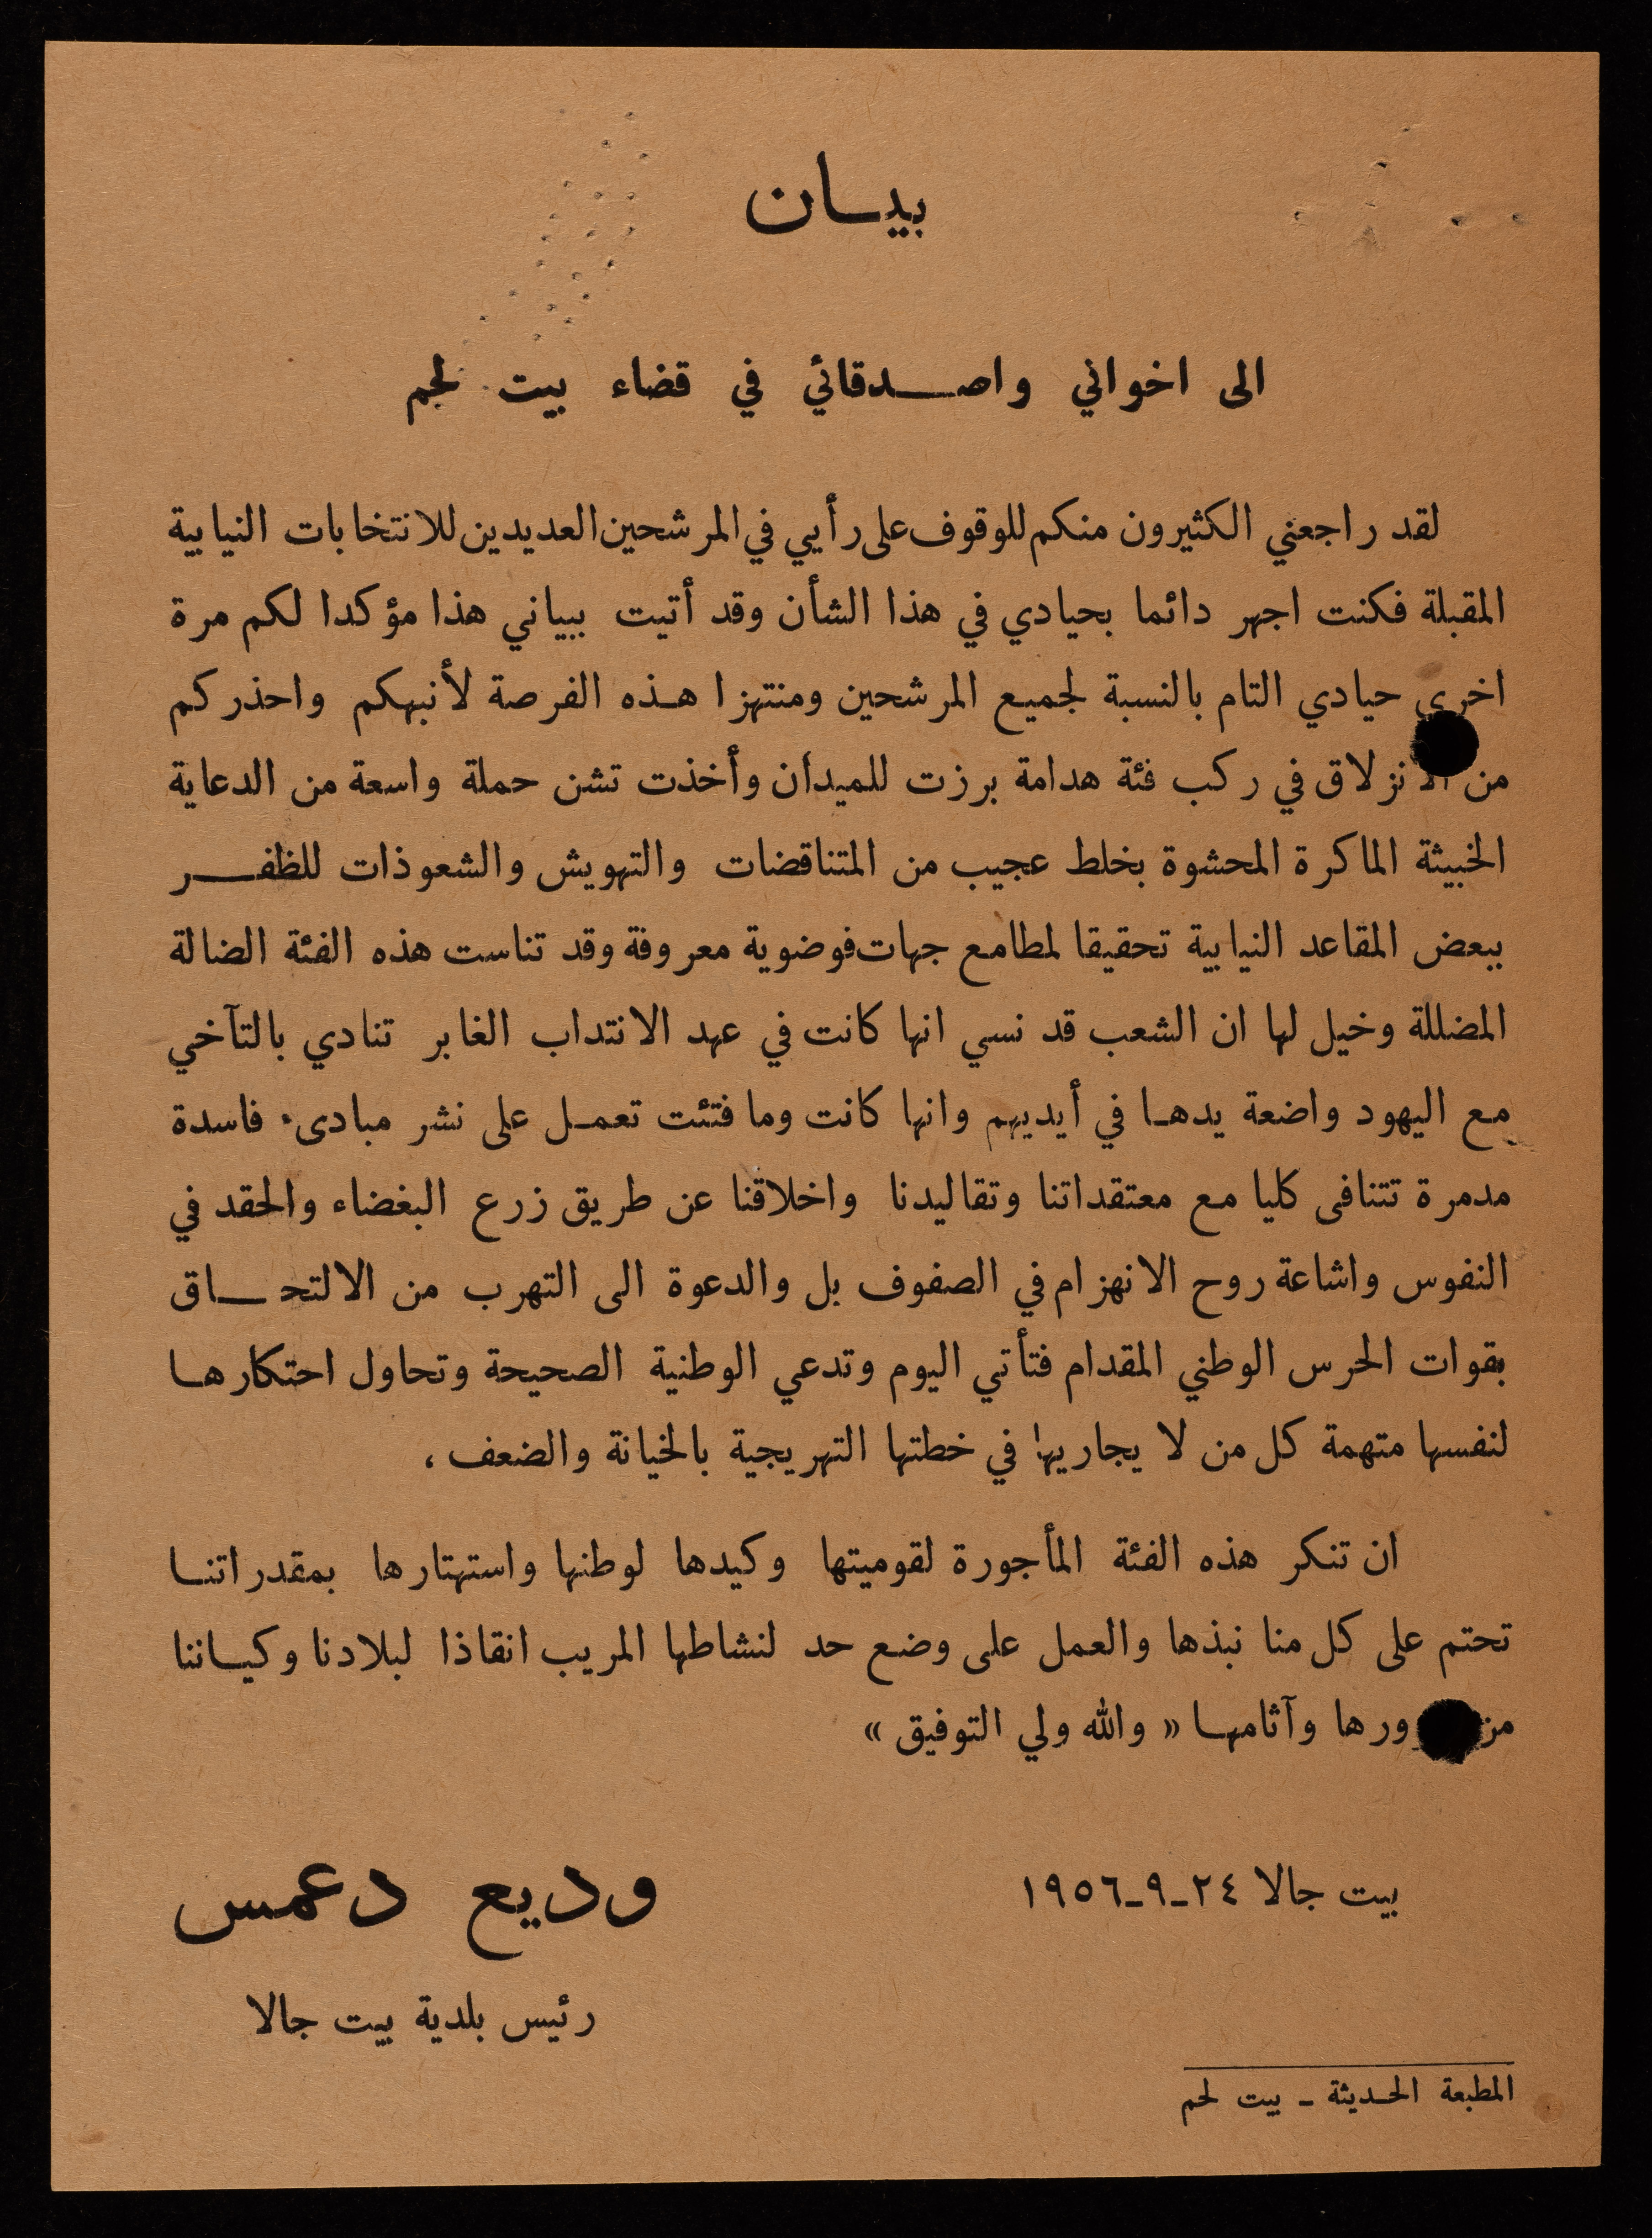 بيان
الى اخواني واصدقائي في قضاء بيت لحم
لقد راجعني الكثيرون منكم للوقوف على رأيي في المرشحين العديدين للانتخابات النيابية
المقبلة فكنت اجهر دائما بحيادي في هذا الشأن وقد أتيت ببياني هذا مؤكدا لكم مرة
اخرى حيادي التام بالنسبة لجميع المرشحين ومنتهزا هذه الفرصة لأنبهكم واحذركم
من الانزلاق في ركب فئة هدامة برزت للميدان وأخذت تشن حملة واسعة من الدعاية
الخبيثة الماكرة المحشوة بخلط عجيب من المتناقضات والتهويش والشعوذات للظفر
ببعض المقاعد النيابية تحقيقا لمطامع جهات فوضوية معروفة وقد تناست هذه الفئة الضالة
المضللة وخيل لها ان الشعب قد نسي انها كانت في عهد الانتداب الغابر تنادي بالتآخي
مع اليهود واضعة يدها في أيديهم وانها كانت وما فتئت تعمل على نشر مبادىء فاسدة
مدمرة تتنافى كليا مع معتقداتنا وتقاليدنا واخلاقنا عن طريق زرع البغضاء والحقد في
النفوس واشاعة روح الانهزام في الصفوف بل والدعوة الى التهرب من الالتحاق
بقوات الحرس الوطني المقدام فتأتي اليوم وتدعي الوطنية الصحيحة وتحاول احتكارها
لنفسها متهمة كل من لا يجاريها في خطتها التهريجية بالخيانة والضعف ،
ان تنكر هذه الفئة المأجورة لقوميتها وكيدها لوطنها واستهتارها بمقدراتنا
تحتم على كل منا نبذها والعمل على وضع حد لنشاطها المريب انقاذا لبلادنا وكياننا
من وآثامها « والله ولي التوفيق »
بيت جالا ٢٤-٩-١٩٥٦
وديع دعمس
رئيس بلدية بيت جالا
المطبعة الحديثة - بيت لحم